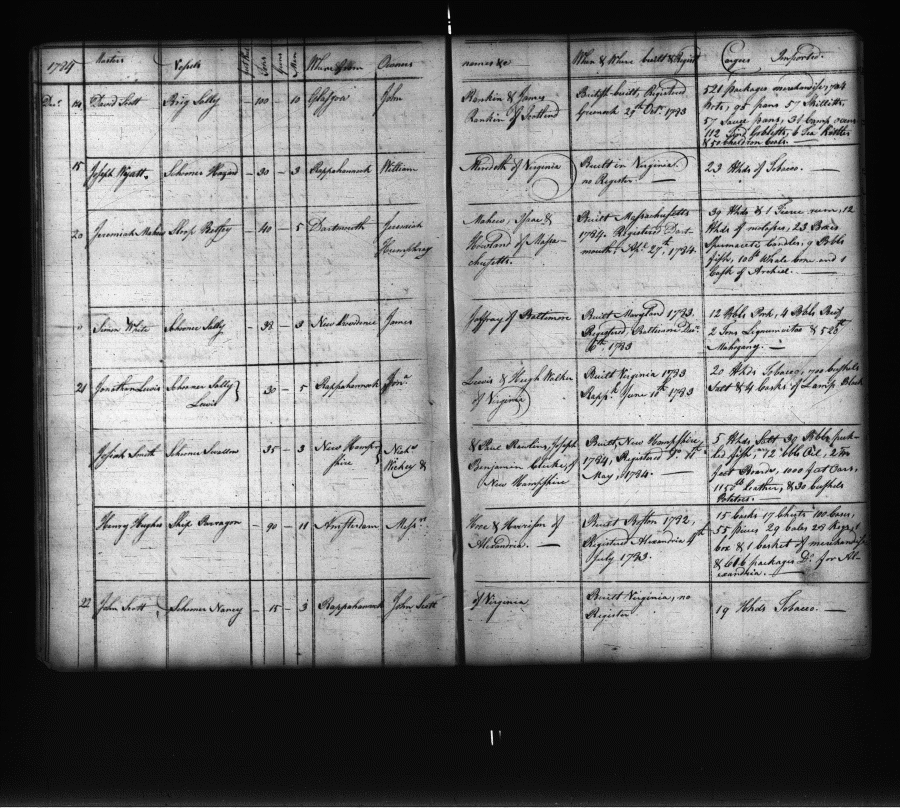 1784 Masters Vessels Tons Guns Men Where from Owners names &c When & Where built & Regist Cargoes Imported
Decr. 14 David Scott Brig Sally — 100 — 10 Glasgow John Rankin & James British-built, Registered 521 packages merchandise, 724
Rankin of Scotland Greenock 29th Octr. 1783 Pots, 98 pans 57 Skilletts,
57 Sauce pans, 31 Camp ovens
112 Goblets, 6 Tea Kettles
& 50 Chaldron Coals. —
15 Joseph Wyatt. Schooner Hazard — 30 — 3 Rappahannock William Meredeth of Virginia Built in Virginia. 23 Hhds of Tobacco. —
no Register. —
20 Jeremiah Mahew Sloop Betsey — 40 — 5 Dartmouth Jeremiah Mahew, Isaac & Built Massachusetts 39 Hhds & 1 Tierce rum, 12
Humphray Howland of Massa- 1784. Registered Dart- Hhds of molasses, 23 Boxes
chusetts. mouth Apl. 27th, 1784. Spermaceti Candles, 9 Bbls
fish, 108 lb Whale bone and 1
Cask of Archiel. —
" Simon White Schooner Sally — 38 — 3 New Providence James Jaffray of Baltimore Built Maryland 1783. 12 Bbls Pork, 4 Bbls Beef
Registered, Baltimore Decr. 2 Tons Lignumvitae & 528 ft
6th 1783 Mahogany. —
21 Jonathan Lewis Schooner Sally 30 — 5 Rappahannock Jona. Lewis & Hugh Walker Built Virginia 1783 20 Hhds Tobacco, 700 bushels
Lewis of Virginia Rappk. June 10th 1783 Salt & 4 Casks of Lamp Black
Josiah Smith Schooner Swallow — 35 — 3 New Hamp- Nichs. & Paul Rankins, Joseph Built New Hampshire 5 Hhds Salt 39 Bbls pick-
shire Rickey & Benjamin Clarke, of 1784, Registered Do. 10th led fish, 12 bbls Oil, 2 m
New Hampshire May, 1784. — feet Boards, 1000 feet Oars,
1150 lb leather, & 30 bushels
Potatoes. —
Henry Hughes Ship Paragon — 90 — 11 Amsterdam Messrs. Hooe & Harrison of Built Boston 1782, 15 Casks 17 Chests 100 Cases,
Alexandria. — Registered Alexandria 4th 55 pieces 29 bales 28 Kegs, 1
July 1783. box & 1 basket of merchandise
& 616 packages Do. for Al-
exandria. —
22 John Scott Schooner Nancy — 15 — 3 Rappahannock John Scott of Virginia Built Virginia, no 19 Hhds Tobacco. —
Register